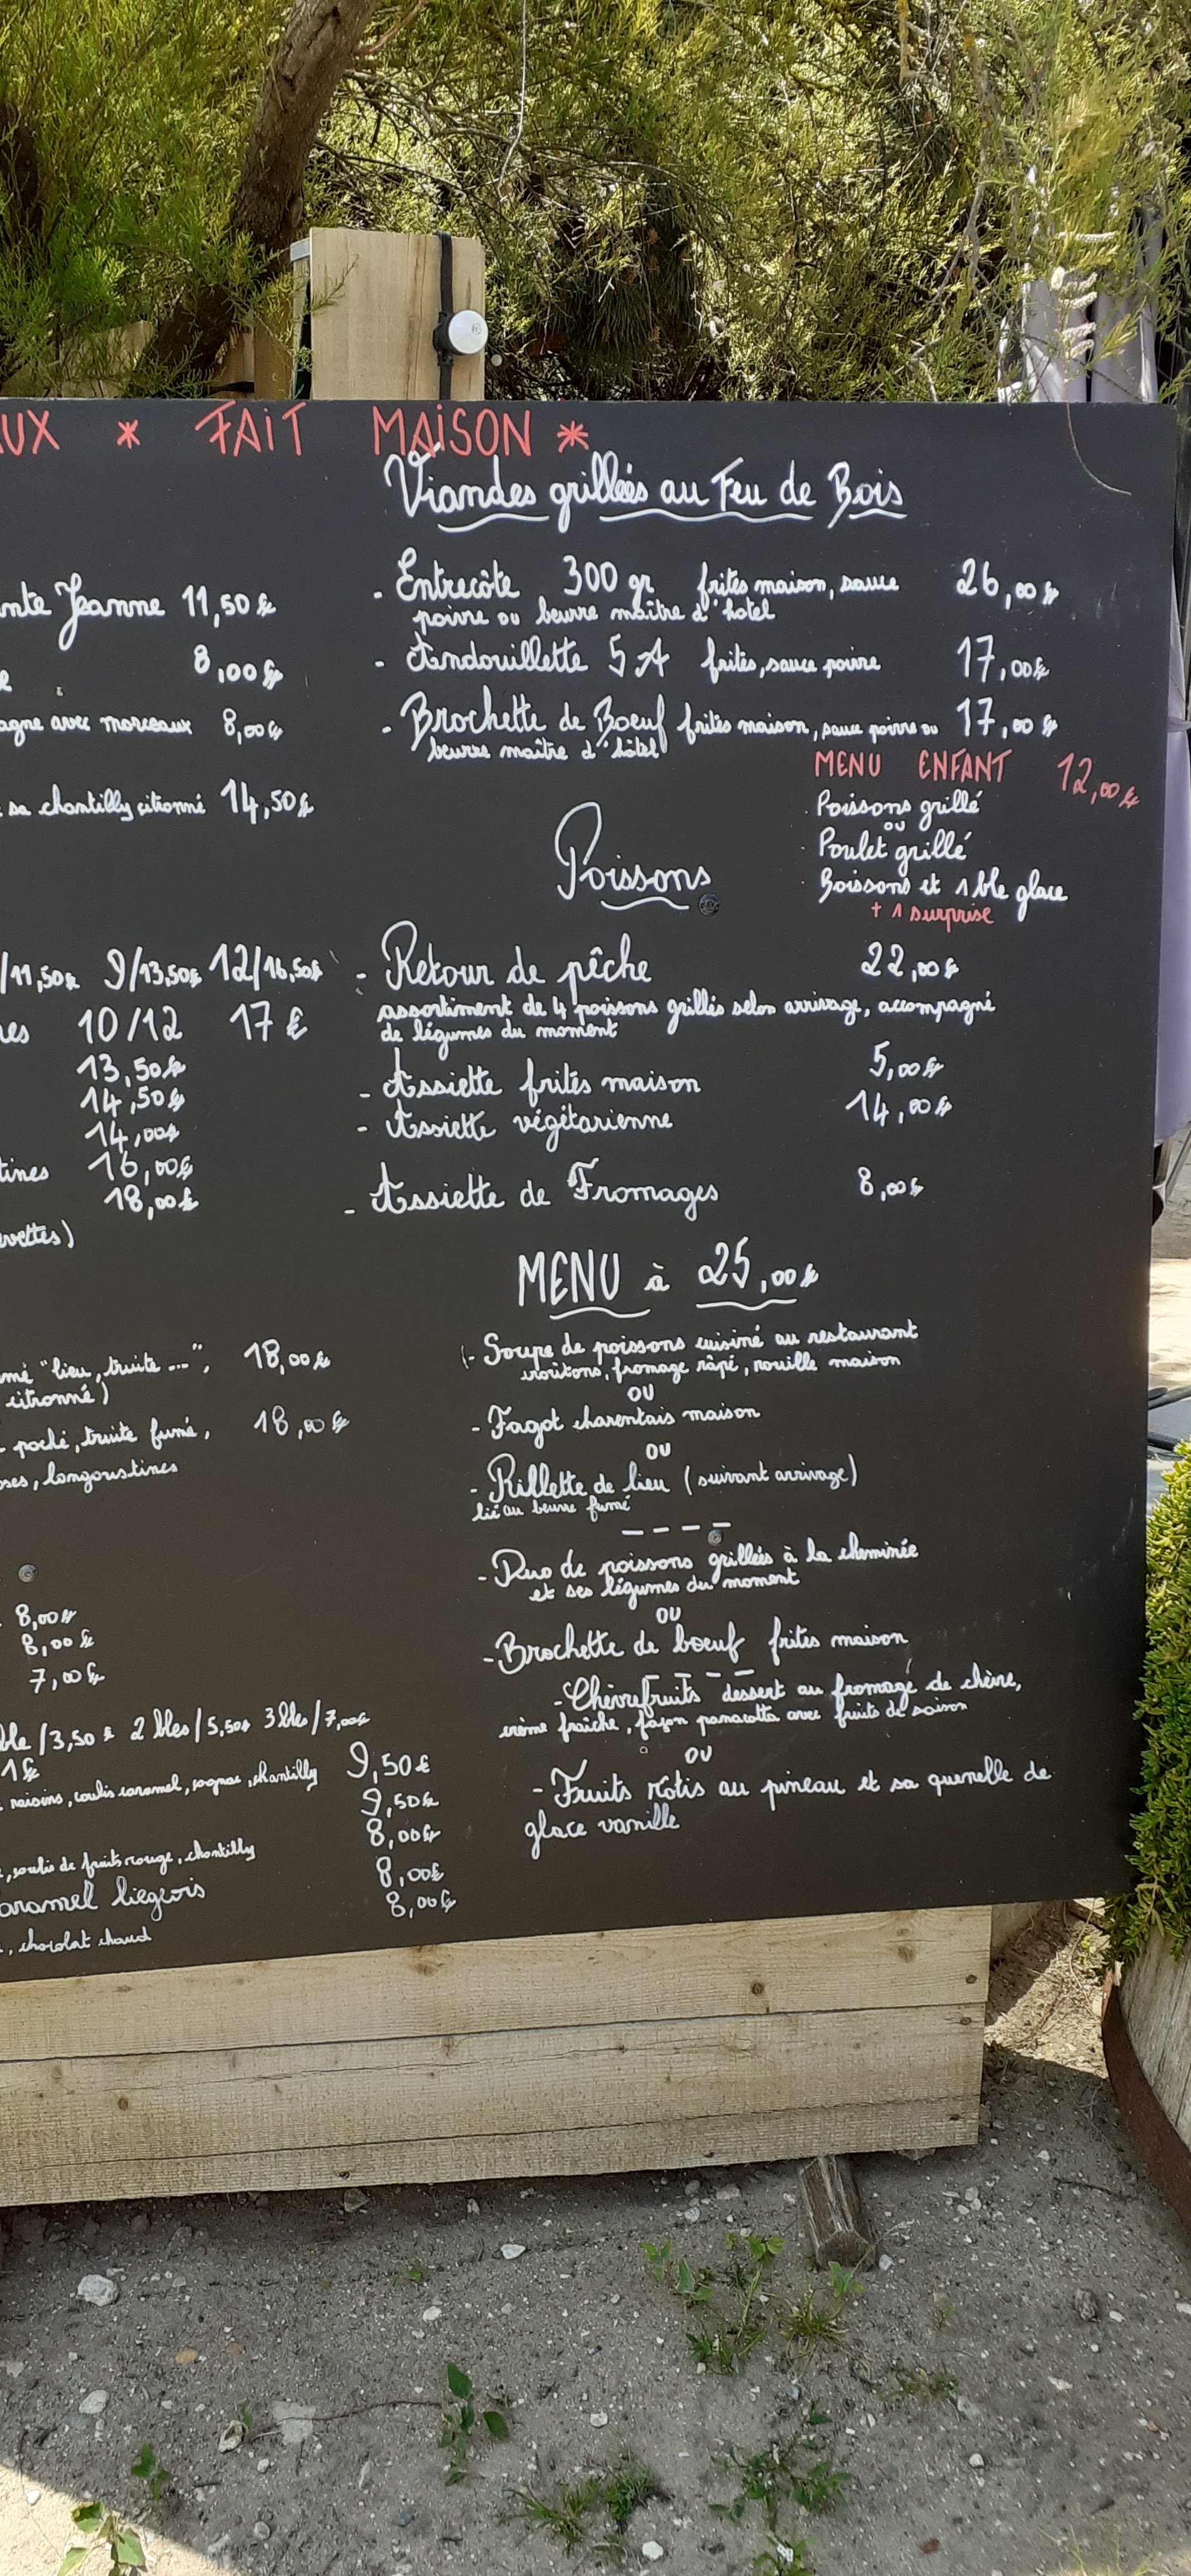 AUX * FAIT MAISON *
Jeanne 11,50€
8,00€
avec morceaux 8,00€
sa chantilly citronné 14,50€
/11,50€ 9/13,50€ 12/16,50€
10/12 17€
13,50€
14,50€
14,00€
16,00€
18,00€
"lieu, truite ...", 18,00€
citronné)
poché, truite fumé, 18,00€
langoustines
8,00€
8,00€
7,00€
/3,50€ 2 bles/5,50€ 3 bles/7,00€
1€
raisins, coulis caramel, cognac, chantilly 9,50€
9,50€
8,00€
coulis de fruits rouge, chantilly
8,00€
liegeois 8,00€
, chocolat chaud
Viandes grillées au Feu de Bois
- Entrecôte 300 gr frites maison, sauce 26,00€
poivre ou beurre maître d'hotel
- Andouillette 5 A frites, sauce poivre 17,00€
- Brochette de Boeuf frites maison, sauce poivre ou 17,00€
beurre maître d'hôtel
MENU ENFANT 12,00€
Poissons grillé
ou
Poulet grillé
Boissons et 1 ble glace
+ 1 surprise
Poissons
- Retour de pêche 22,00€
assortiment de 4 poissons grillés selon arrivage, accompagné
de légumes du moment
- Assiette frites maison 5,00€
- Assiette végétarienne 14,00€
- Assiette de Fromages 8,00€
MENU à 25,00€
- Soupe de poissons cuisiné au restaurant
croûtons, fromage râpé, rouille maison
OU
- Fagot charentais maison
OU
- Rillette de lieu (suivant arrivage)
lié au beurre fumé
----
- Duo de poissons grillées à la cheminée
et ses légumes du moment
OU
- Brochette de boeuf frites maison
----
- Chèvrefruits dessert au fromage de chèvre,
crème fraîche, façon panacotta avec fruits de saison
OU
- Fruits rotis au pineau et sa quenelle de
glace vanille